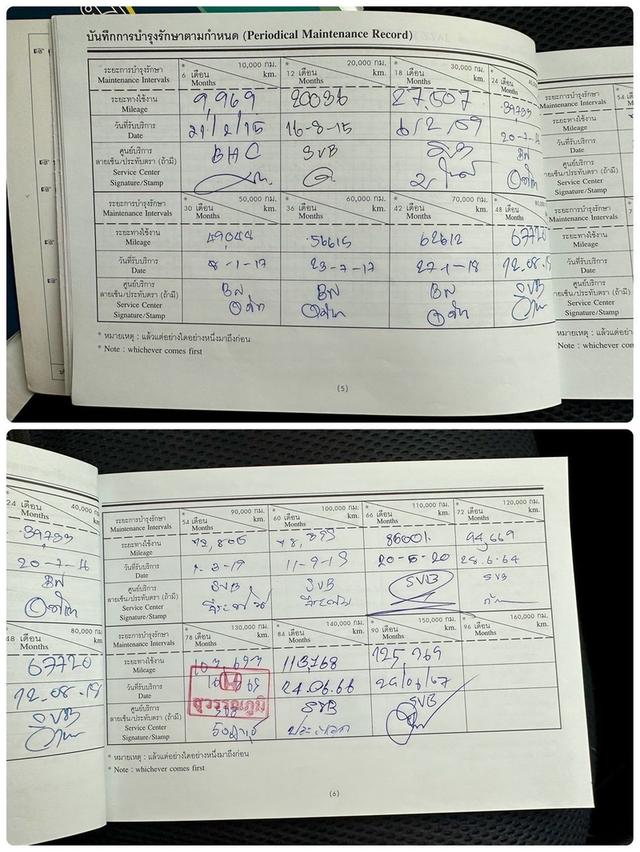 บันทึกการบำรุงรักษาตามกำหนด (Periodical Maintenance Record)
ระยะการบำรุงรักษา * เดือน 10,000 กม. * เดือน 20,000 กม. * เดือน 30,000 กม. * เดือน
Maintenance Intervals 6 Months km. 12 Months km. 18 Months km. 24 Months
ระยะทางใช้งาน Mileage 9,969 20036 27,507 39733
วันที่รับบริการ Date 21/2/15 16-8-15 6/2/59 20-7-16
ศูนย์บริการ BHC SVB
ลายเซ็น/ประทับตรา (ถ้ามี)
Service Center
Signature/Stamp
ระยะการบำรุงรักษา * เดือน 50,000 กม. * เดือน 60,000 กม. * เดือน 70,000 กม. * เดือน
Maintenance Intervals 30 Months km. 36 Months km. 42 Months km. 48 Months
ระยะทางใช้งาน Mileage 49044 56615 62612 67720
วันที่รับบริการ Date 8-1-17 23-7-17 27-1-18 12.08.18
ศูนย์บริการ SVB
ลายเซ็น/ประทับตรา (ถ้ามี)
Service Center
Signature/Stamp
* หมายเหตุ : แล้วแต่อย่างใดอย่างหนึ่งมาถึงก่อน
* Note : whichever comes first
(5)
24 เดือน 40,000 กม. ระยะการบำรุงรักษา * เดือน 90,000 กม. * เดือน 100,000 กม. * เดือน 110,000 กม. * เดือน 120,000 กม.
Months km. Maintenance Intervals 54 Months km. 60 Months km. 66 Months km. 72 Months km.
39733 ระยะทางใช้งาน Mileage 72,806 86001 94,669
20-7-16 วันที่รับบริการ Date 11-9-19 20-5-20 28.6.64
ศูนย์บริการ SVB SVB SVB SVB
ลายเซ็น/ประทับตรา (ถ้ามี)
Service Center
Signature/Stamp
48 เดือน 80,000 กม. ระยะการบำรุงรักษา * เดือน 130,000 กม. * เดือน 140,000 กม. * เดือน 150,000 กม. * เดือน 160,000 กม.
Months km. Maintenance Intervals 78 Months km. 84 Months km. 90 Months km. 96 Months km.
67720 ระยะทางใช้งาน Mileage 103,693 113,768 125,769
12.08.18 วันที่รับบริการ Date 24.06.66 29/06/67
สุวรรณภูมิ
SVB ศูนย์บริการ SVB SVB SVB
ลายเซ็น/ประทับตรา (ถ้ามี)
Service Center
Signature/Stamp
* หมายเหตุ : แล้วแต่อย่างใดอย่างหนึ่งมาถึงก่อน
* Note : whichever comes first
(6)